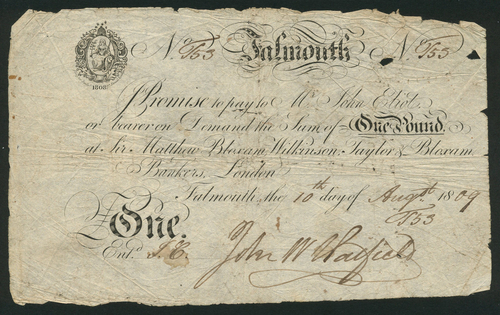 No. T53 Falmouth No. T53
1808
I Promise to pay to Mr. John Eliot.
or bearer on Demand the Sum of One Pound.
at Sir Matthew Bloxam Wilkinson, Taylor & Bloxam
Bankers, London
Falmouth, the 10th day of Augst 1809
T53
£ One.
Entd. J.E. John W Hatfield